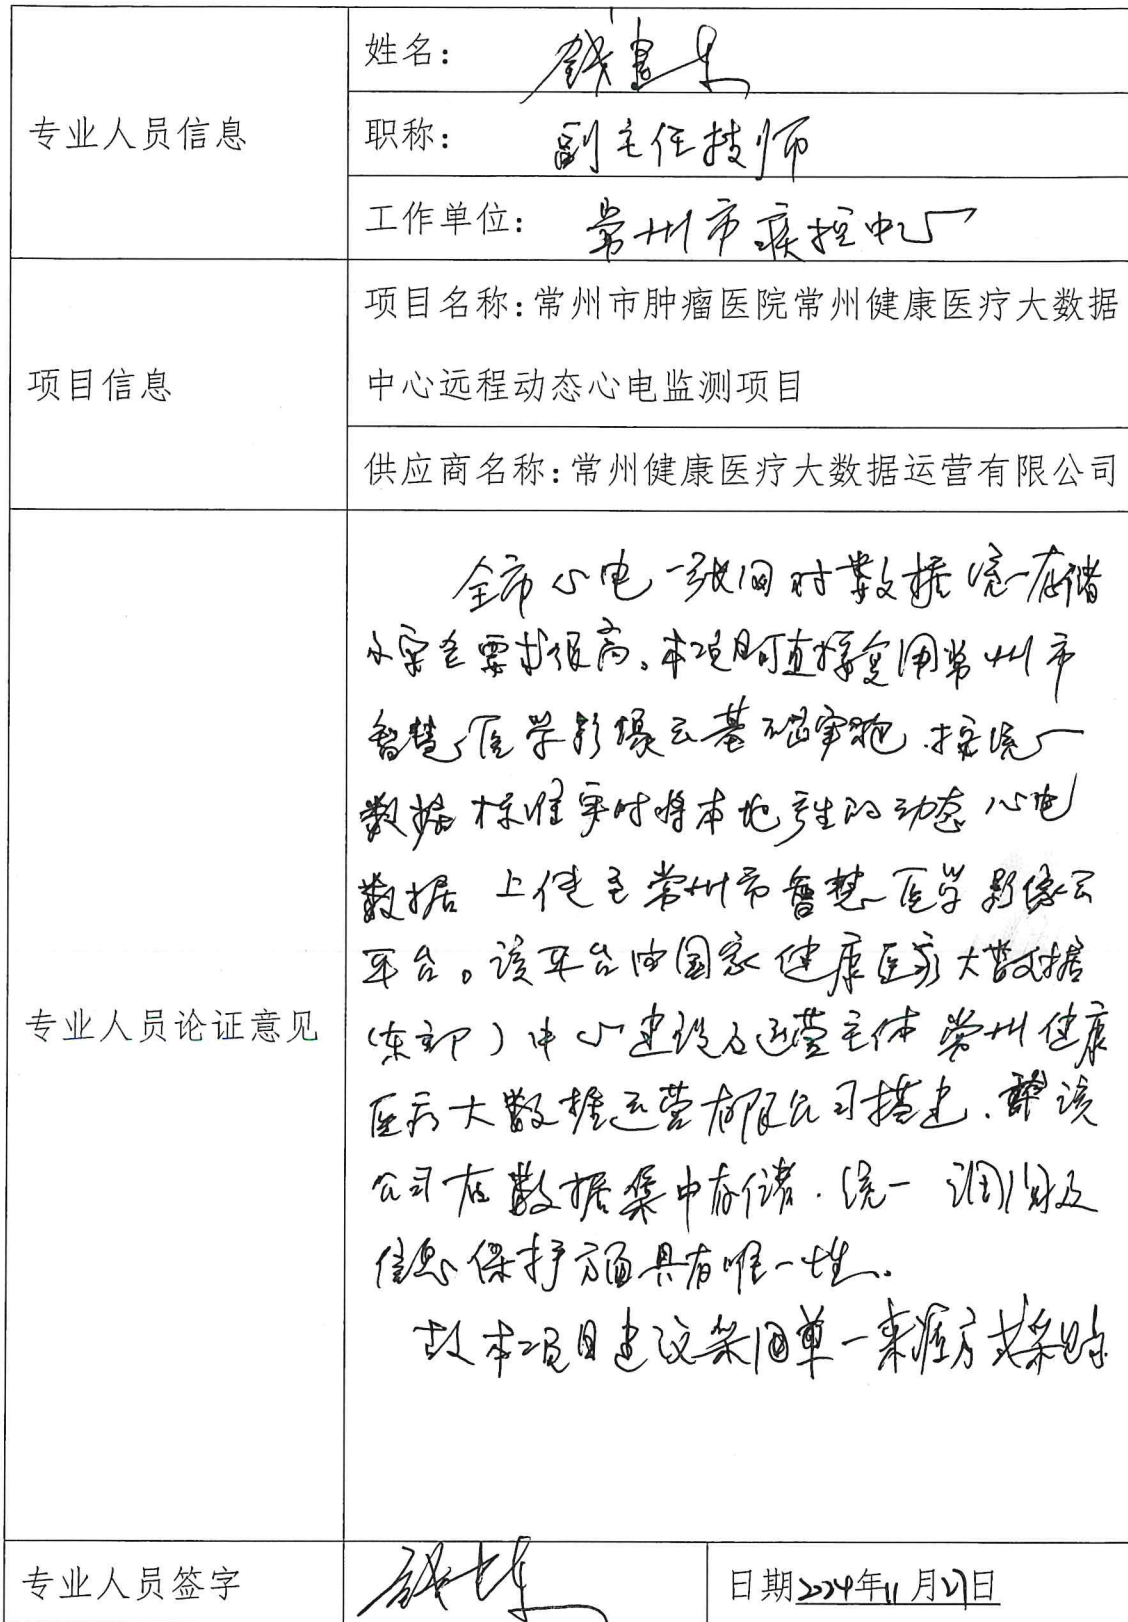 专业人员信息
姓名：钱
职称：副主任技师
工作单位：常州市疾控中心
项目信息
项目名称：常州市肿瘤医院常州健康医疗大数据
中心远程动态心电监测项目
供应商名称：常州健康医疗大数据运营有限公司
专业人员论证意见
全市心电一张网对数据统一存储
安全要求很高。本项目可直接复用常州市
智慧医学影像云基础实施，按统一
数据标准实时将本地产生的动态心电
数据上传至常州市智慧医学影像云
平台。该平台由国家健康医疗大数据
（东部）中心建设及运营主体常州健康
医疗大数据运营有限公司搭建，该
公司在数据集中存储、统一调阅及
信息保护方面具有唯一性。
故本项目建议采用单一来源方式采购
专业人员签字
日期2024年11月27日